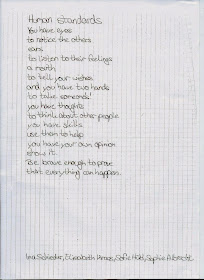 Human standards
You have eyes
to notice the others
ears
to listen to their feelings
a mouth
to tell your wishes
and you have two hands
to take someones!
you have thoughts
to think about other people
you have skills
use them to help
you have your own opinion
show it.
Be brave enough to prove
that everything can happen.
Ina Schieder, Elisabeth Sofie Hödl, Sophie Albrecht